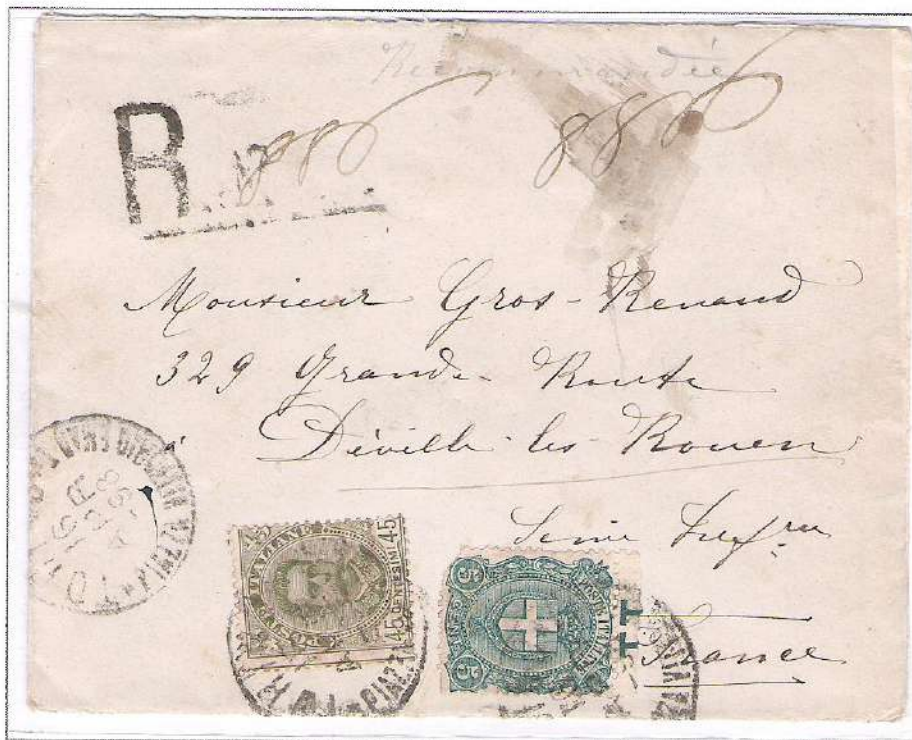 Recommandée
R
886 886
Monsieur Gros-Renaud
329 Grande-Route
à Déville-les-Rouen
Seine Infre
France
45 45
ITALIANE
CENTESIMI
5 5 5
POSTE ITALIANE
TT
PIAZZA
PIAZZ